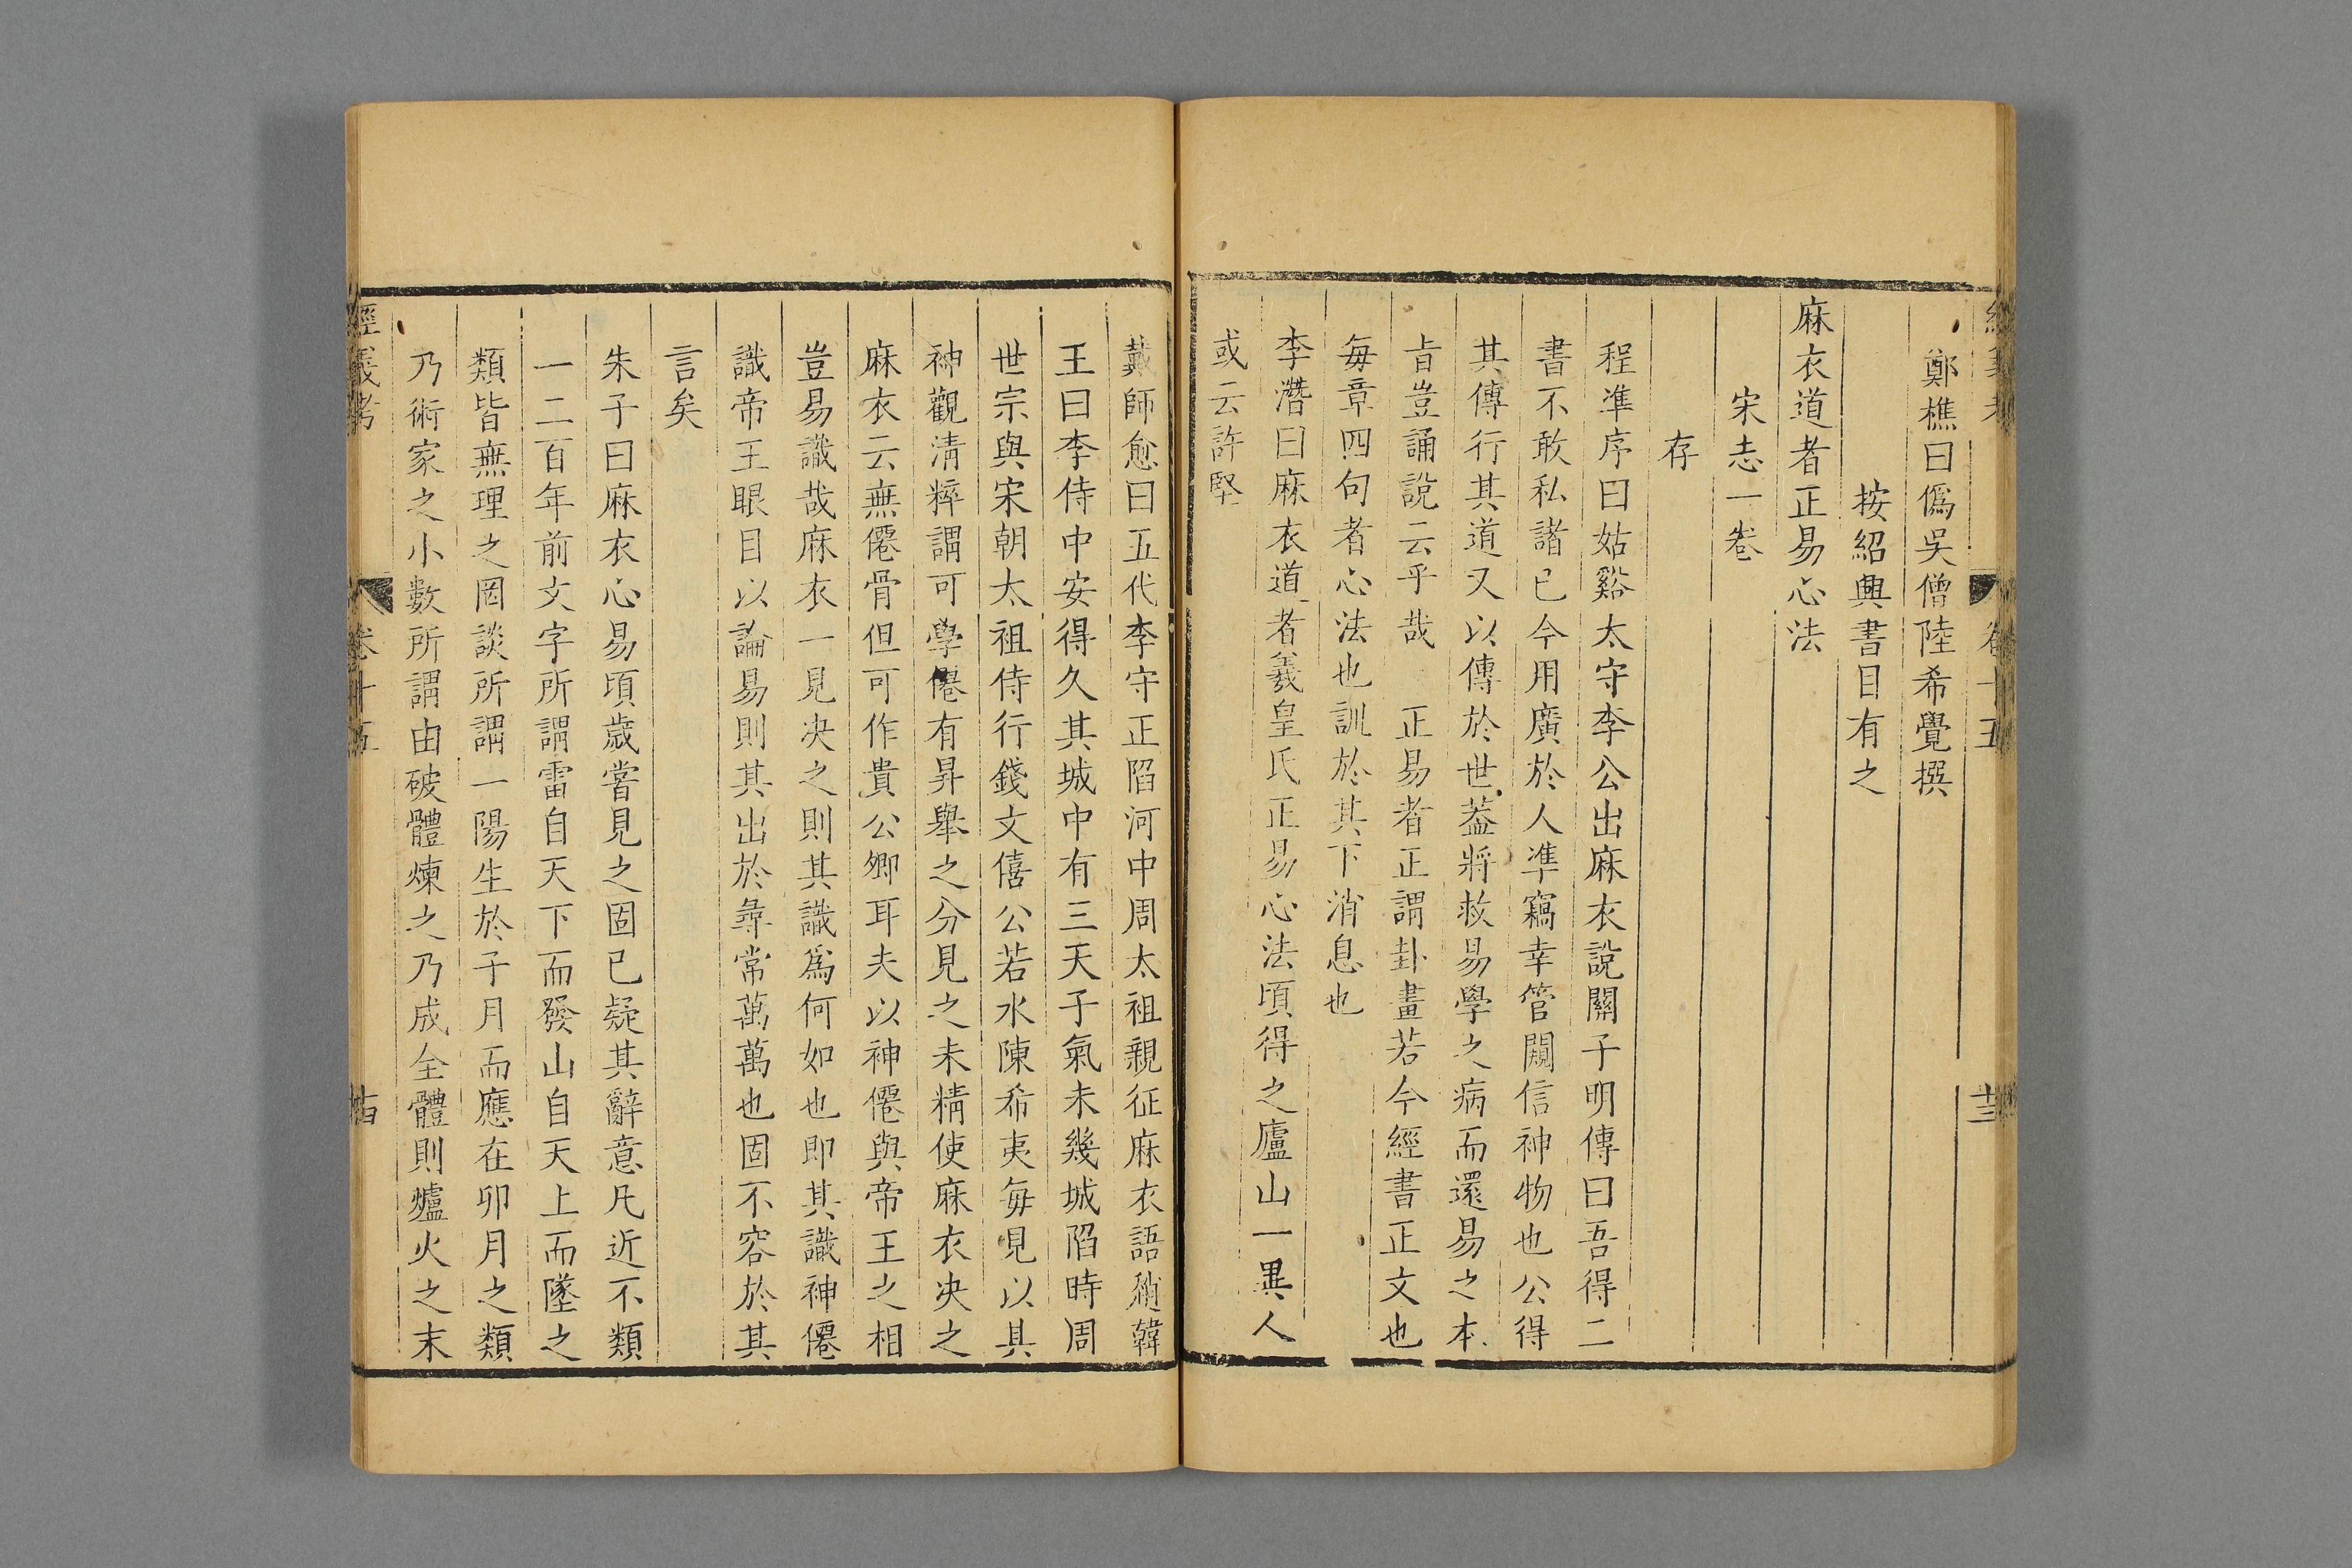 經義考 卷十五 十三
鄭樵曰僞吳僧陸希覺撰
按紹興書目有之
麻衣道者正易心法
宋志一卷
存
程準序曰姑谿太守李公出麻衣說關子明傳曰吾得二
書不敢私諸已今用廣於人準竊幸管闚信神物也公得
其傳行其道又以傳於世葢將救易學之病而還易之本
旨豈誦說云乎哉 正易者正謂卦畫若今經書正文也
每章四句者心法也訓於其下消息也
李潛曰麻衣道者羲皇氏正易心法頃得之廬山一異人
或云許堅
戴師愈曰五代李守正陷河中周太祖親征麻衣語趙韓
王曰李侍中安得久其城中有三天子氣未幾城陷時周
世宗與宋朝太祖侍行錢文僖公若水陳希夷每見以其
神觀淸粹謂可學僊有昇舉之分見之未精使麻衣決之
麻衣云無僊骨但可作貴公卿耳夫以神僊與帝王之相
豈易識哉麻衣一見決之則其識爲何如也即其識神僊
識帝王眼目以論易則其出於尋常萬萬也固不容於其
言矣
朱子曰麻衣心易頃歲嘗見之固已疑其辭意凡近不類
一二百年前文字所謂雷自天下而發山自天上而墜之
類皆無理之罔談所謂一陽生於子月而應在卯月之類
乃術家之小數所謂由破體煉之乃成全體則爐火之末
經義考 卷十五 十四